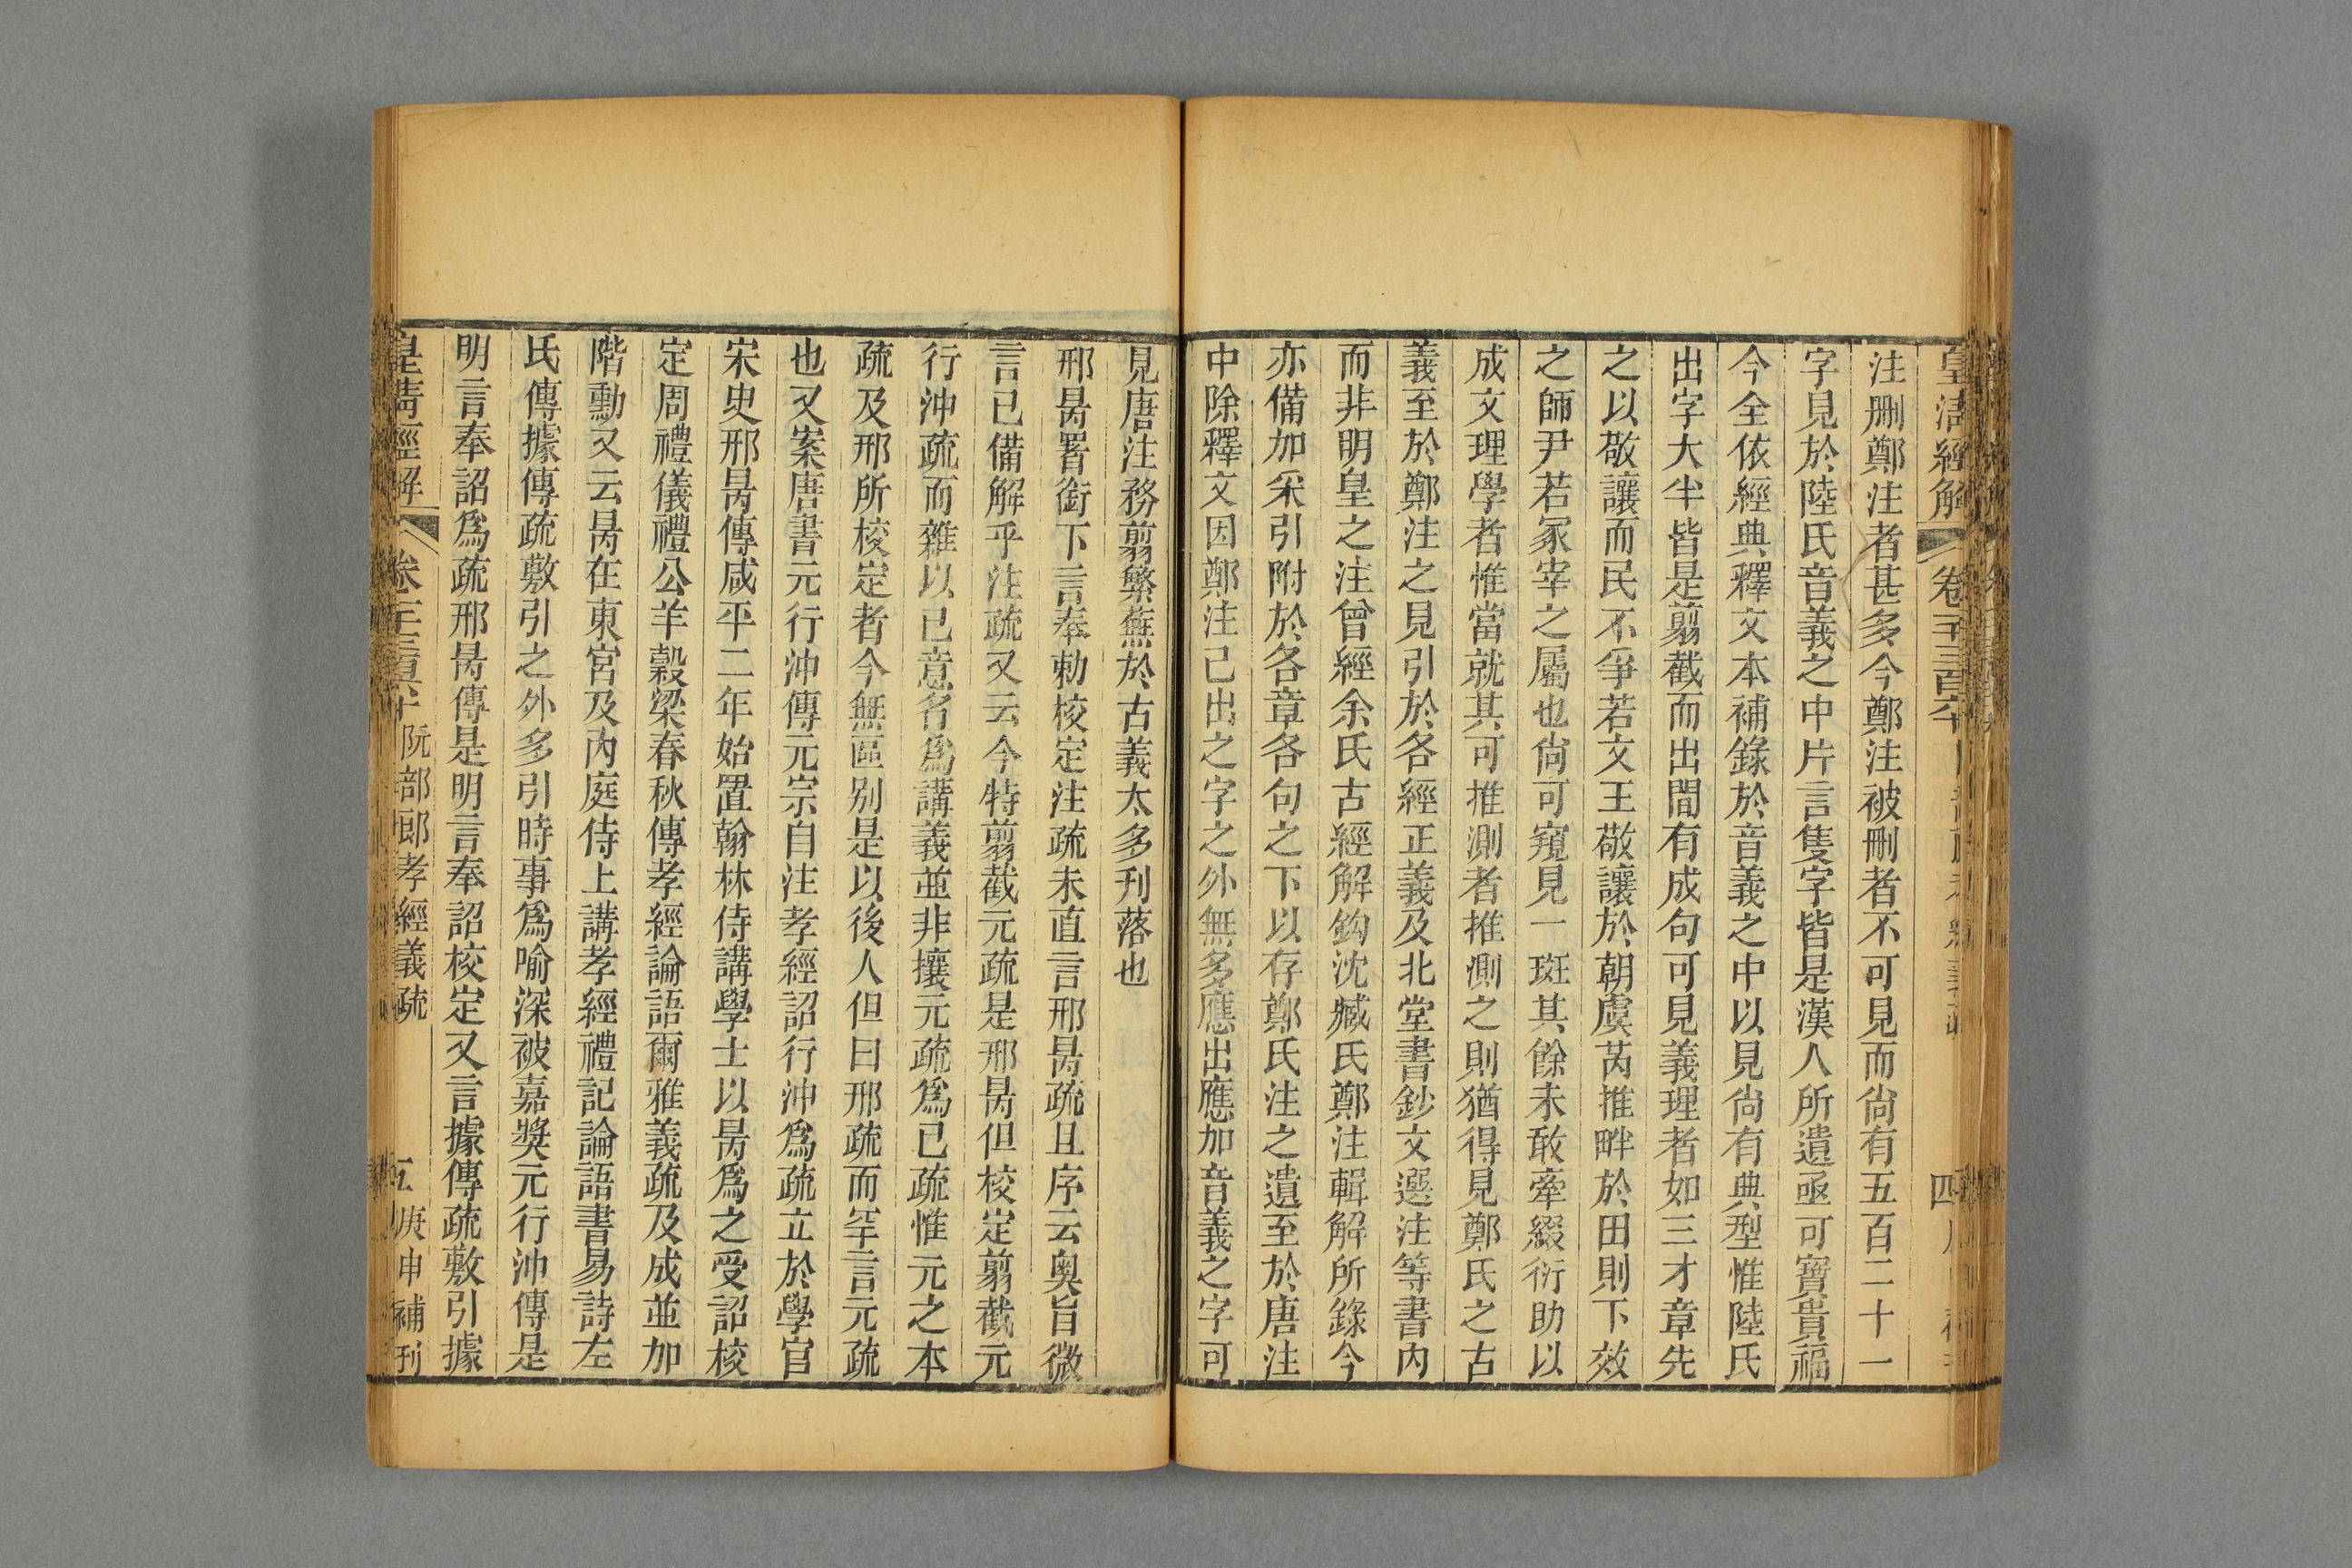 皇清經解 卷千三百六十 四
注删鄭注者甚多今鄭注被删者不可見而尙有五百二十一
字見於陸氏音義之中片言隻字皆是漢人所遺亟可寶貴福
今全依經典釋文本補錄於音義之中以見尙有典型惟陸氏
出字大半皆是翦截而出閒有成句可見義理者如三才章先
之以敬讓而民不爭若文王敬讓於朝虞芮推畔於田則下效
之師尹若冢宰之屬也尙可窺見一斑其餘未敢牽綴衍助以
成文理學者惟當就其可推測者推測之則猶得見鄭氏之古
義至於鄭注之見引於各經正義及北堂書鈔文選注等書內
而非明皇之注曾經余氏古經解鈎沈臧氏鄭注輯解所錄今
亦備加采引附於各章各句之下以存鄭氏注之遺至於唐注
中除釋文因鄭注已出之字之外無多應出應加音義之字可
見唐注務翦繁蕪於古義太多刋落也
邢昺署銜下言奉勅校定注疏未直言邢昺疏且序云奥旨微
言已備解乎注疏又云今特翦截元疏是邢昺但校定翦截元
行沖疏而雜以已意名爲講義並非攘元疏爲已疏惟元之本
疏及邢所校定者今無區别是以後人但曰邢疏而罕言元疏
也又案唐書元行沖傳元宗自注孝經詔行沖爲疏立於學官
宋史邢昺傳咸平二年始置翰林侍講學士以昺爲之受詔校
定周禮儀禮公羊穀梁春秋傳孝經論語爾雅義疏及成並加
階勳又云昺在東宮及內庭侍上講孝經禮記論語書易詩左
氏傳據傳疏敷引之外多引時事爲喻深被嘉奬元行沖傳是
明言奉詔爲疏邢昺傳是明言奉詔校定又言據傳疏敷引據
皇淸經解 卷千三百六十 阮部郎孝經義疏 五 庚申補刋